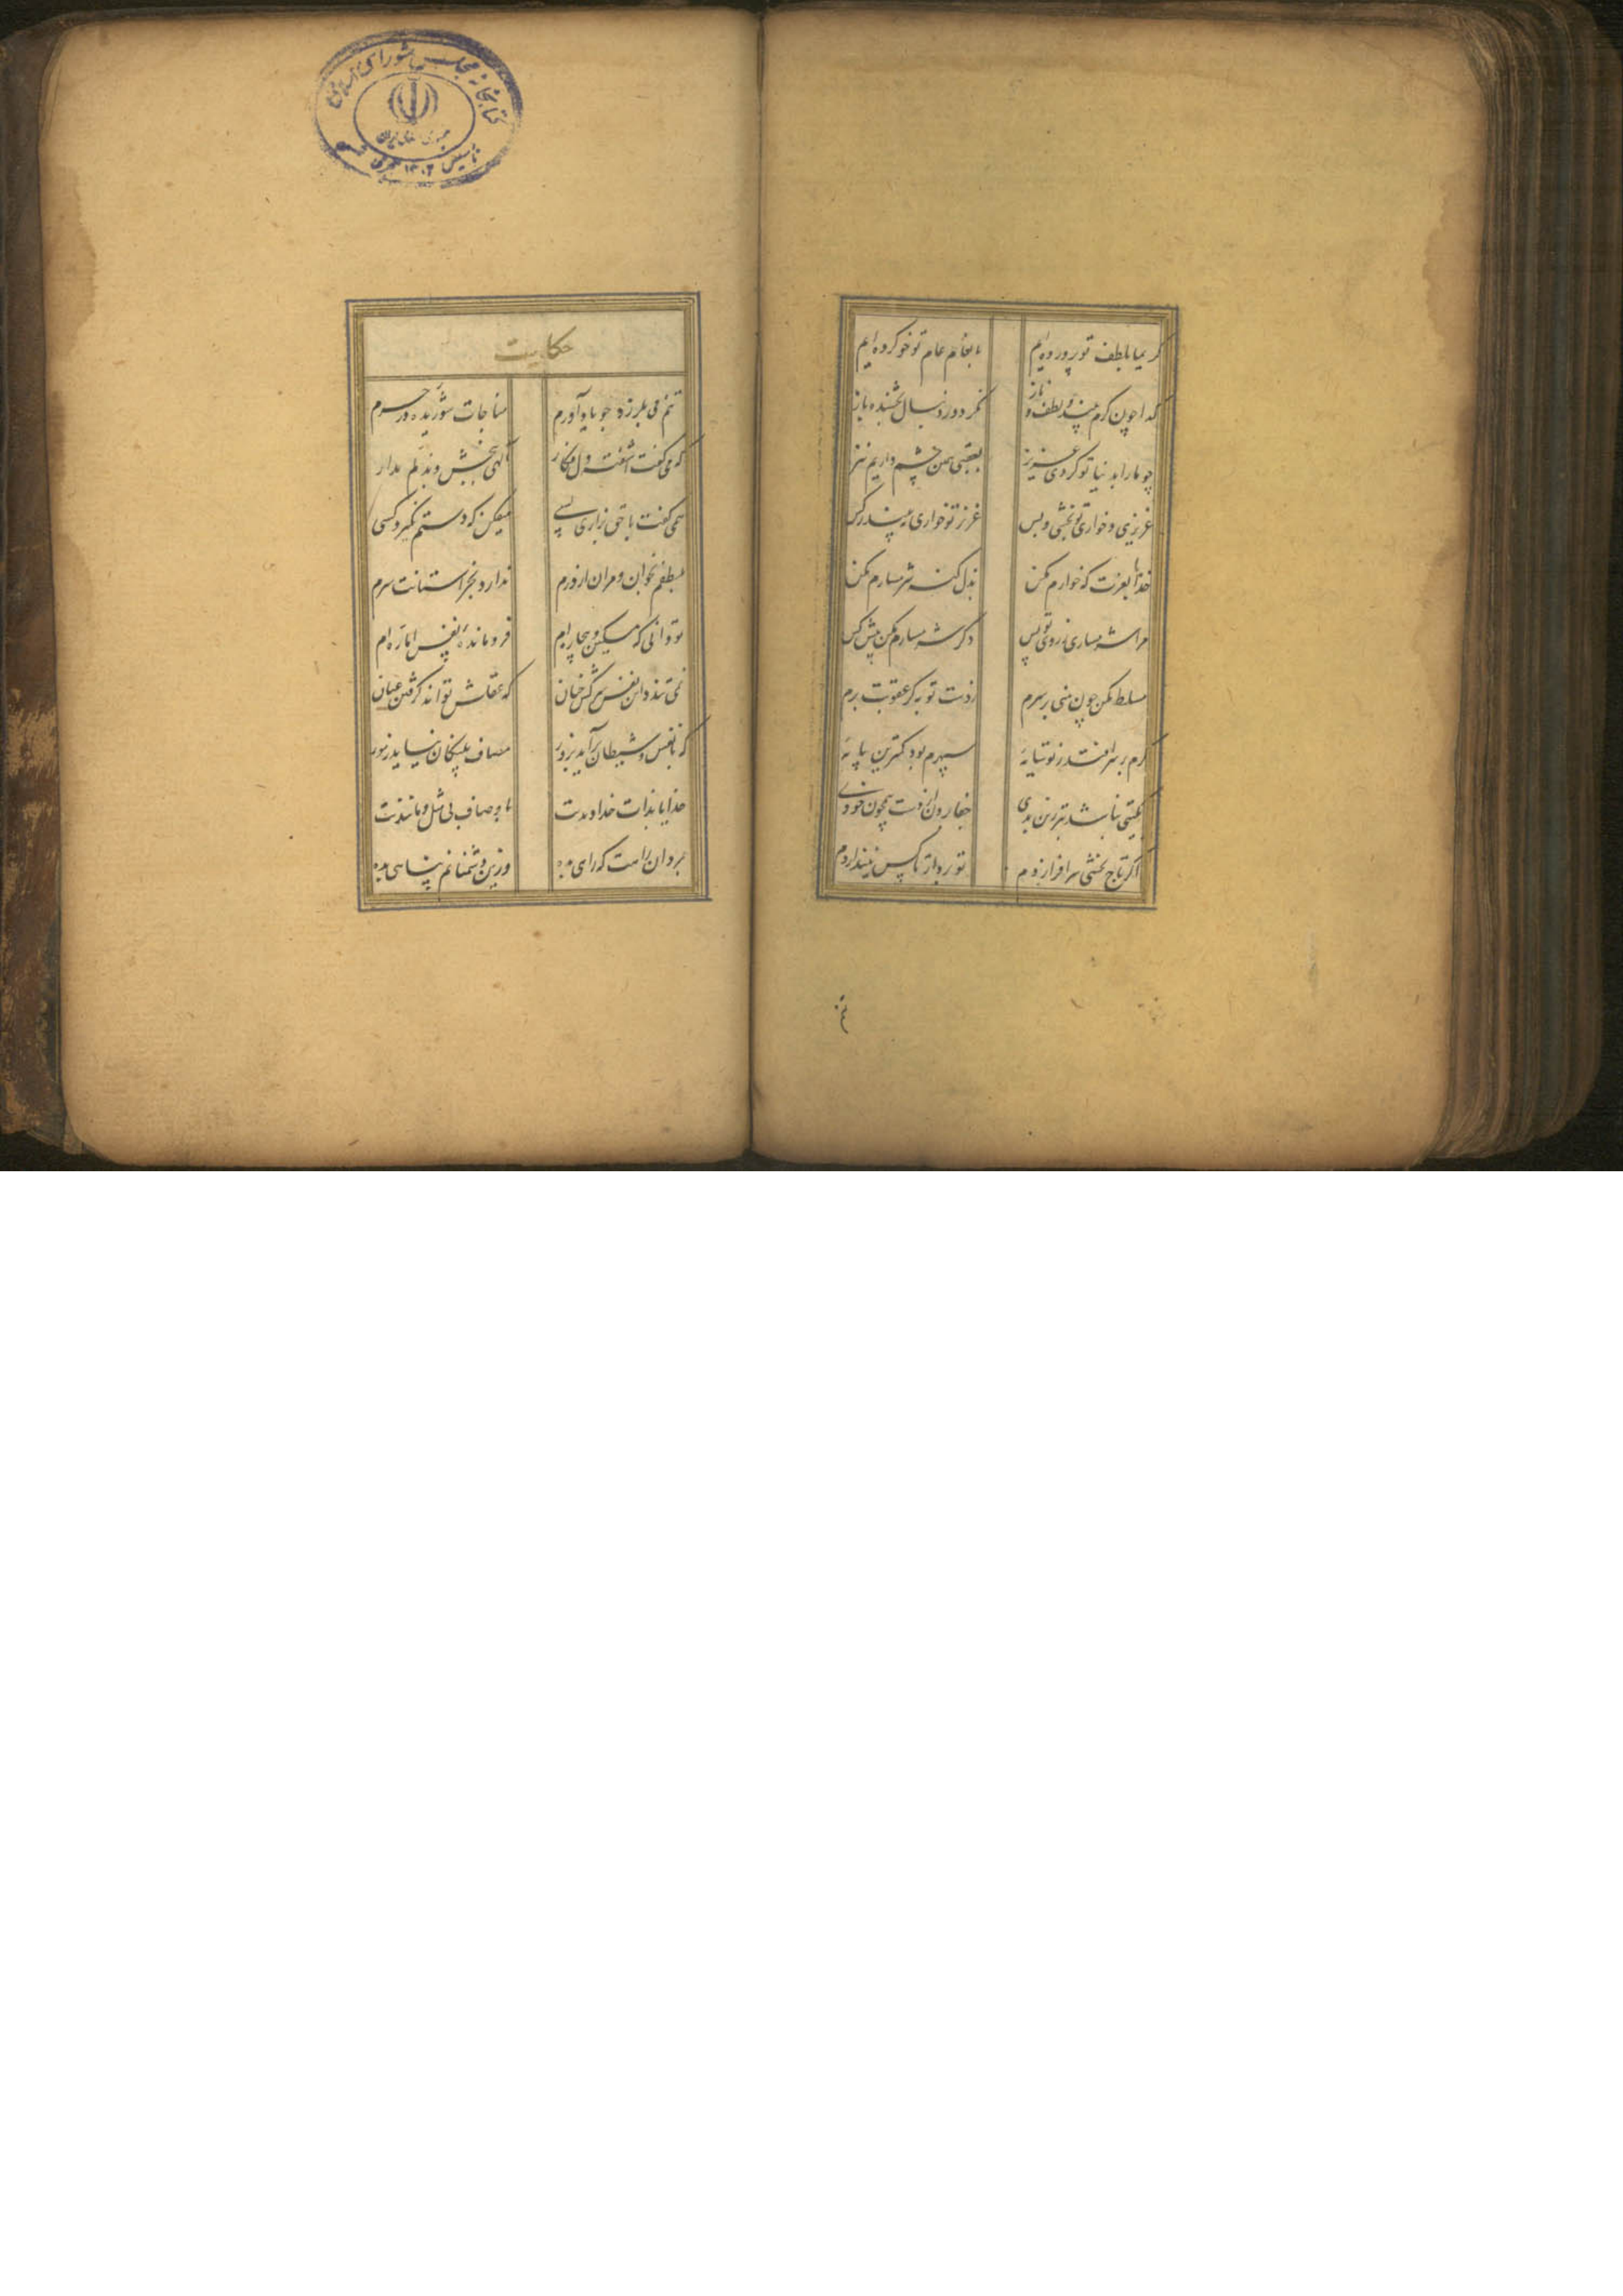 کریما بلطف تو پرورده‌ایم بانعام عام تو خو کرده‌ایم
گدا چون کرم بیند و لطف و ناز نگردد ز دنبال بخشنده باز
چو ما را بدنیا تو کردی عزیز بعقبی همین چشم داریم نیز
عزیزی و خواری تو بخشی و بس عزیز تو خواری نبیند ز کس
خدایا بعزت که خوارم مکن بذل گنه شرمسارم مکن
مرا شرمساری ز روی تو بس دگر شرمسارم مکن پیش کس
مسلط مکن چون منی بر سرم ز دست تو به گر عقوبت برم
گرم بر سر افتد ز تو سایه سپهرم بود کمترین پایه
بگیتی نباشد بتر زین بدی جفا بردن از دست همچون خودی
اگر تاج بخشی سر افرازدم تو بردار تا کس نیندازدم
تنم
کتابخانه مجلس شورای اسلامی
جمهوری اسلامی ایران
تأسیس ۱۳۰۲ هجری شمسی
حکایت
تنم می بلرزد چو یاد آورم مناجات شوریده در حرم
که می گفت آشفته دل فکار الهی ببخش و بذلم مدار
همی گفت با حق بزاری بسی میفکن که دستم نگیرد کسی
بلطفم بخوان و مران از درم ندارد بجز آستانت سرم
تو دانی که مسکین و بیچاره‌ام فرومانده نفس اماره‌ام
نمی تندد این نفس سرکش چنان که عقلش تواند گرفتن عنان
که با نفس و شیطان برآید بزور مصاف پلنگان نیاید ز مور
خدایا بذات خداوندیت باوصاف بی مثل و مانندیت
بمردان راهت که راهی بده وزین دشمنانم پناهی بده